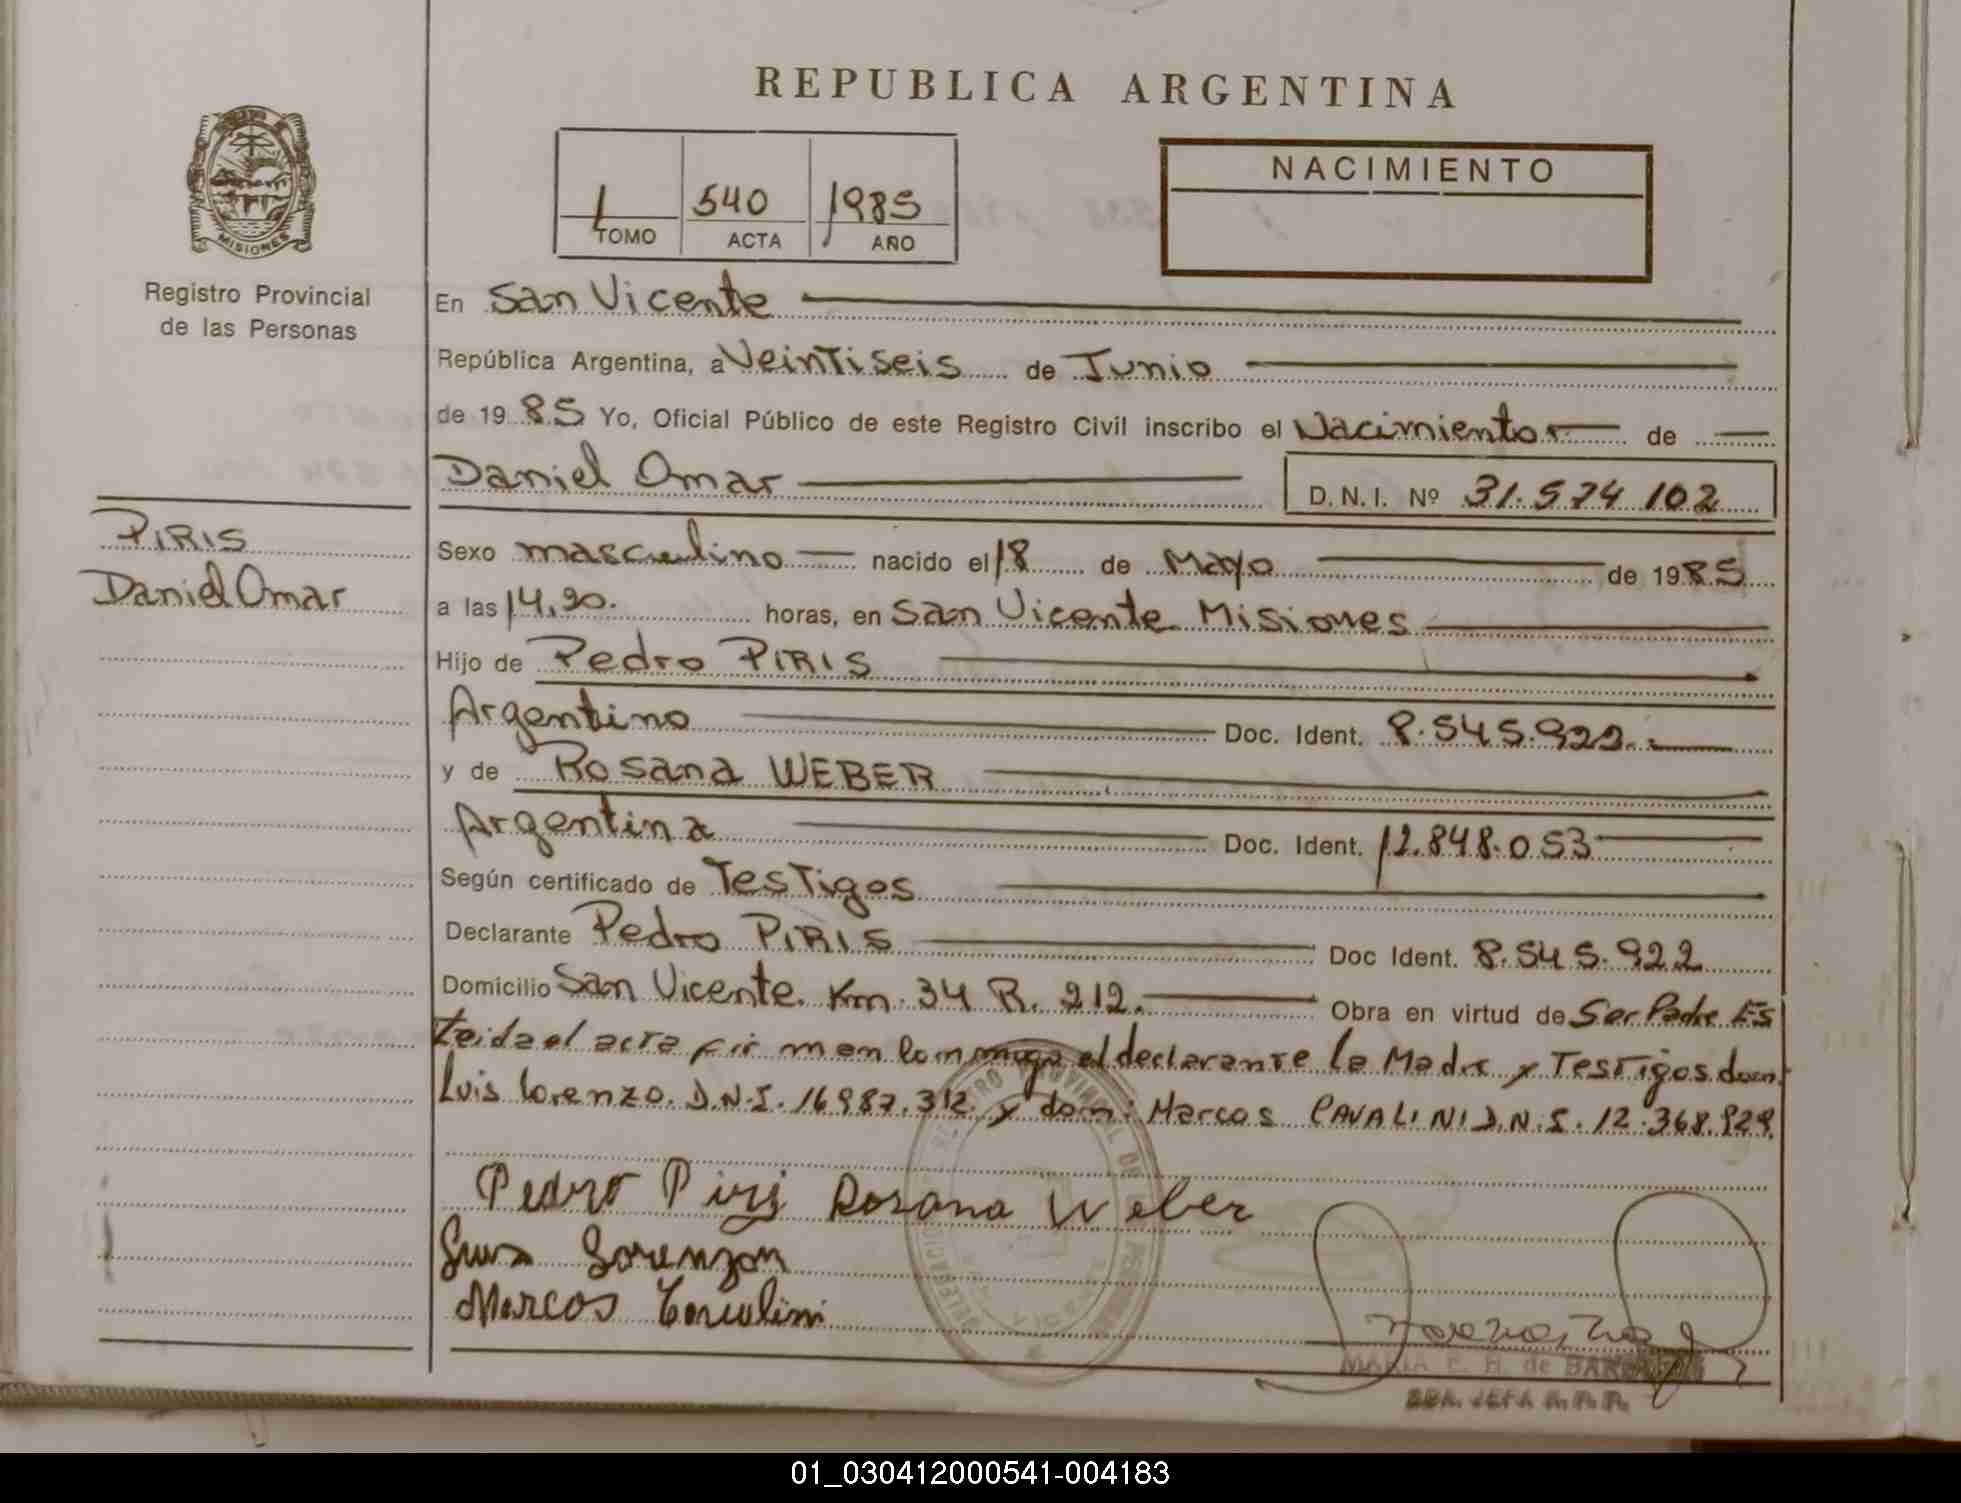 REPUBLICA ARGENTINA
MISIONES
Registro Provincial
de las Personas
1 540 1985
TOMO ACTA AÑO
NACIMIENTO
En San Vicente
República Argentina, a Veintiseis de Junio
de 1985 Yo, Oficial Público de este Registro Civil inscribo el Nacimiento de
Daniel Omar D.N.I. Nº 31.574.102
PIRIS
Daniel Omar
Sexo masculino nacido el 18 de Mayo de 1985
a las 14,30. horas, en San Vicente Misiones
Hijo de Pedro PIRIS
Argentino Doc. Ident. 8.545.922.
y de Rosana WEBER
Argentina Doc. Ident. 12.848.053
Según certificado de Testigos
Declarante Pedro PIRIS Doc Ident. 8.545.922
Domicilio San Vicente. Km. 34 R. 212. Obra en virtud de Ser Padre Es
Leida el acta firman conmigo el declarante la Madre y Testigos don:
Luis Lorenzo. D.N.I. 16987.312. y don: Marcos CAVALINI D.N.I. 12.368.929.
Pedro Piris Rosana Weber
Luis Lorenzon
Marcos
MARIA E. H. de
01_030412000541-004183